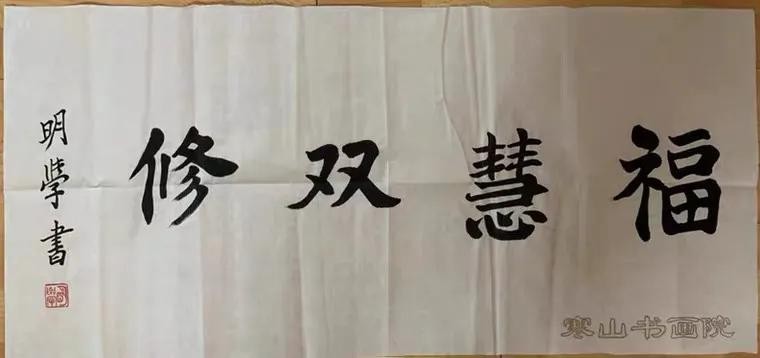 福慧双修
明学書
寒山书画院